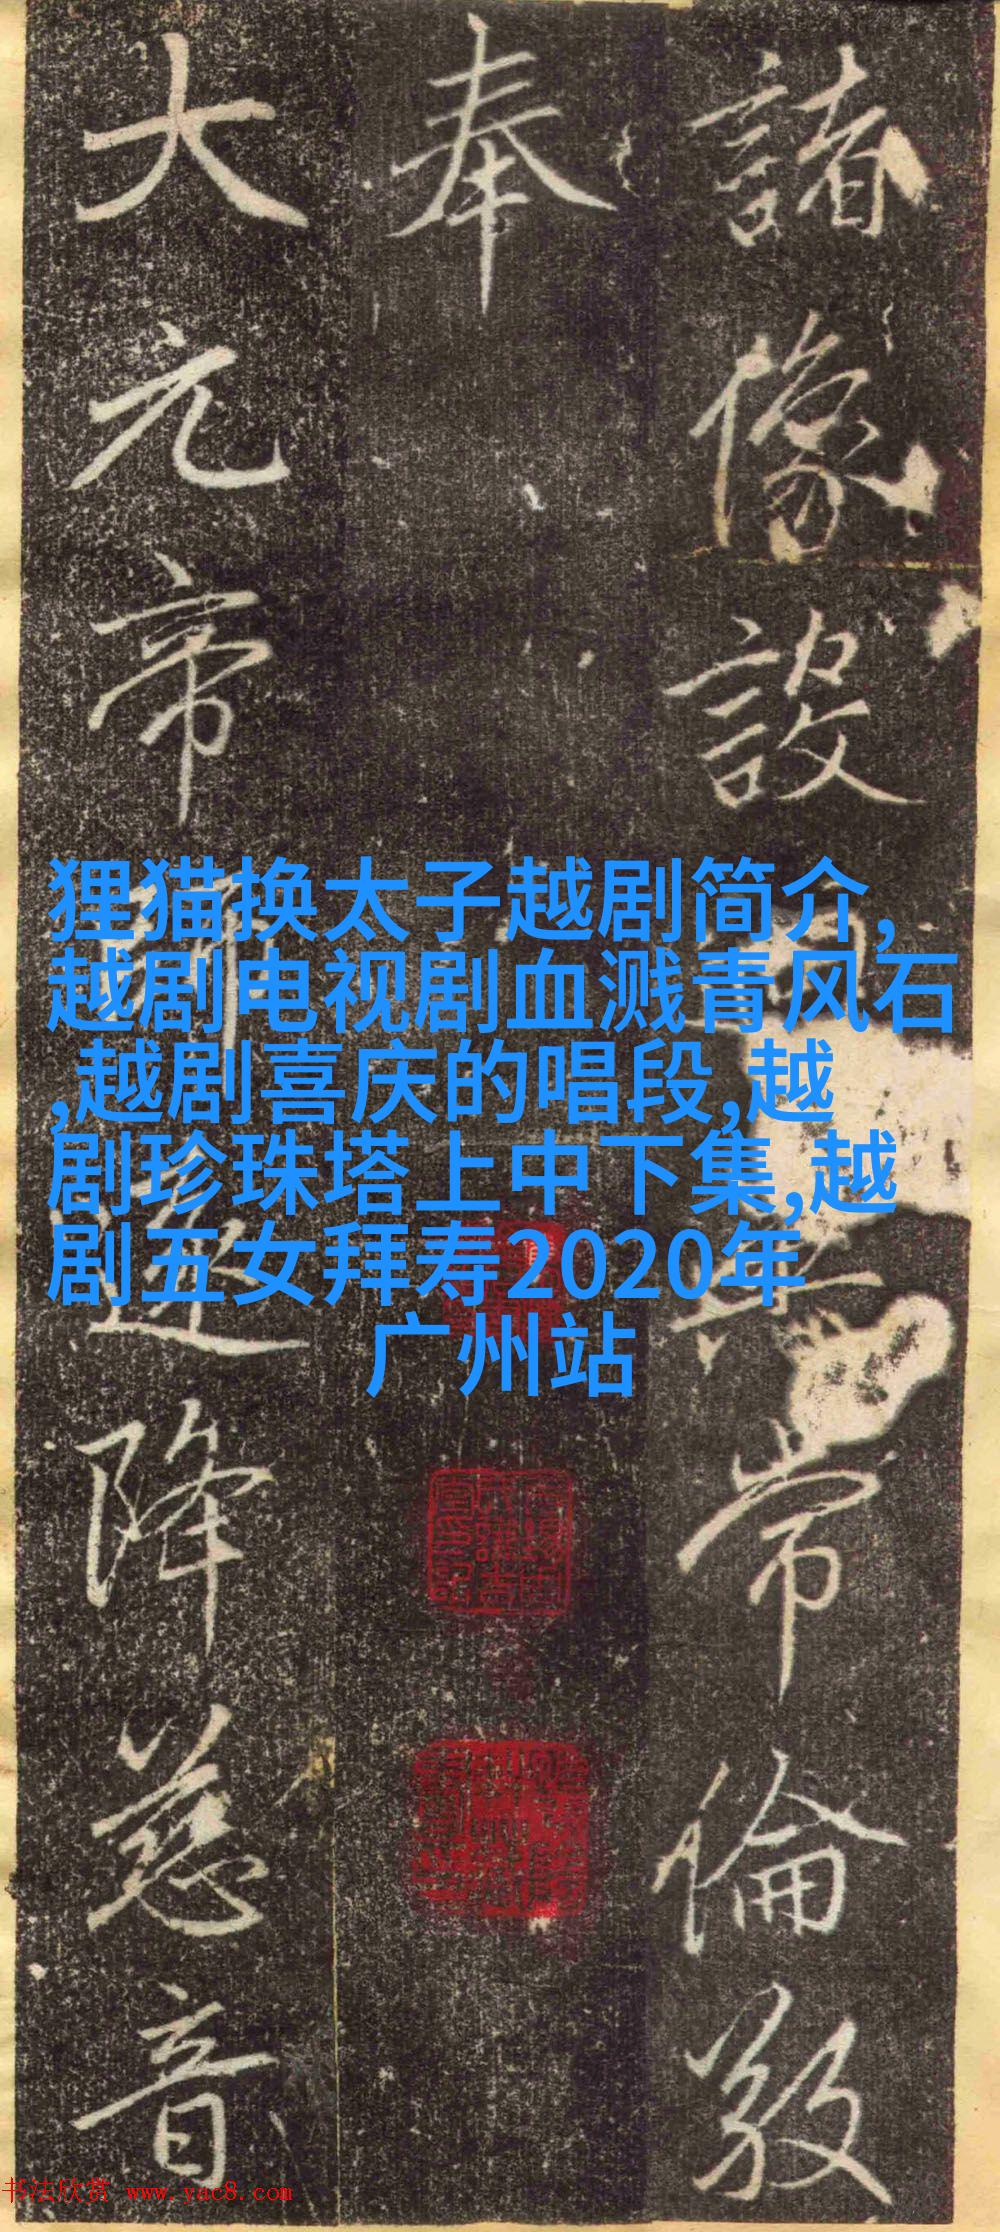 諸像設
常倫敬
奉
大元帝
降慈音
狸猫换太子越剧简介,
越剧电视剧血溅青风石
,越剧喜庆的唱段,越
剧珍珠塔上中下集,越
剧五女拜寿2020年
广州站
书法欣赏 www.yac8.com